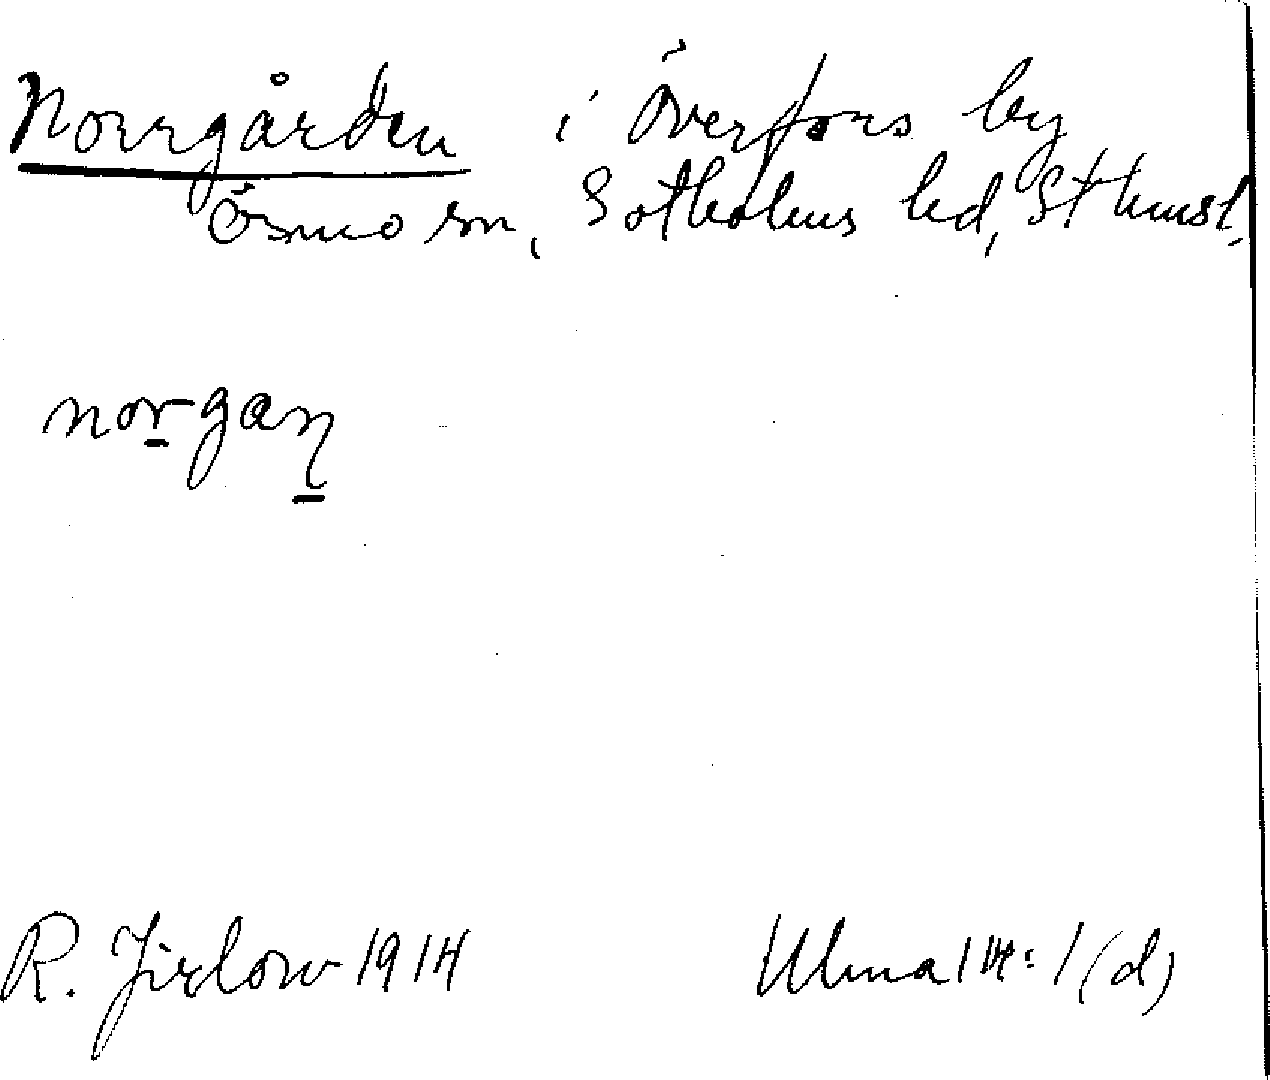 Norrgården i Överfors by
Ösmo sn, Sotholms hd, Sthmsl.
norgaɳ
R. Jirlow 1914
Ulma 114:1 (d)